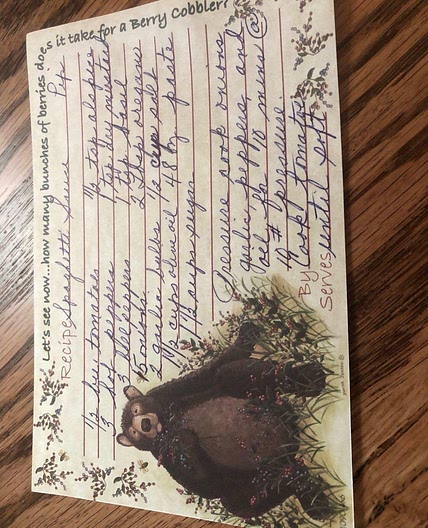 Let's see now...how many bunches of berries does it take for a Berry Cobbler?
Recipe Spaghetti Sauce
1/2 bu tomatoes 1/2 tsp allspice
3 hot peppers
3 bell peppers 1 tsp basil
5 onions 2 tbsp oregano
2 garlic bulbs 1/2 cup salt
1 1/2 cups olive oil 48 oz paste
1 1/2 cups sugar
Pressure cook onions
garlic peppers and
oil for 10 mins @
# pressure
Cook tomatoes
until soft
By
Serves